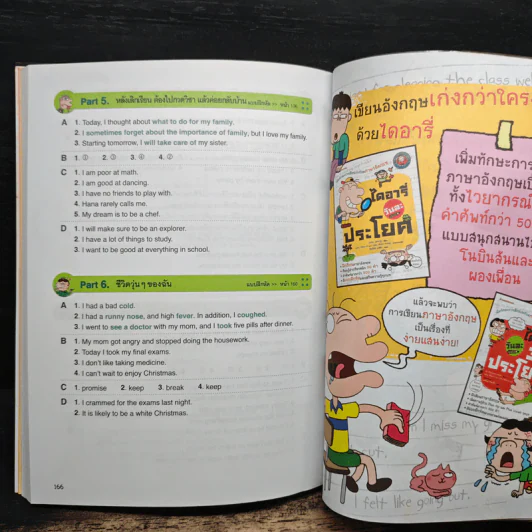 Part 5. หลังเลิกเรียน ต้องไปกวดวิชา แล้วค่อยกลับบ้าน
A 1. Today, I thought about what to do for my family.
2. I sometimes forget about the importance of family, but I love my family.
3. Starting tomorrow, I will take care of my sister.
B 1. ① 2. ③ 3. ④ 4. ②
C 1. I am poor at math.
2. I am good at dancing.
3. I have no friends to play with.
4. Hana rarely calls me.
5. My dream is to be a chef.
D 1. I will make sure to be an explorer.
2. I have a lot of things to study.
3. I want to be good at everything in school.
Part 6. ชีวิตวุ่น ๆ ของฉัน แบบฝึกหัด >> หน้า 160
A 1. I had a bad cold.
2. I had a runny nose, and high fever. In addition, I coughed.
3. I went to see a doctor with my mom, and I took five pills after dinner.
B 1. My mom got angry and stopped doing the housework.
2. Today I took my final exams.
3. I don't like taking medicine.
4. I can't wait to enjoy Christmas.
C 1. promise 2. keep 3. break 4. keep
D 1. I crammed for the exams last night.
2. It is likely to be a white Christmas.
166
the class
เขียนอังกฤษเก่งกว่าใคร
ด้วยไดอารี่
เพิ่มทักษะการ
ภาษาอังกฤษ
ทั้งไวยากรณ์
คำศัพท์กว่า 50
แบบสนุกสนาน
โนบินสันและ
ผองเพื่อน
ไดอารี่
วันละ
ประโยค
แล้วจะพบว่า
การเขียนภาษาอังกฤษ
เป็นเรื่องที่
ง่ายแสนง่าย!
วันละ
ประโย
I miss my
I felt like going out.